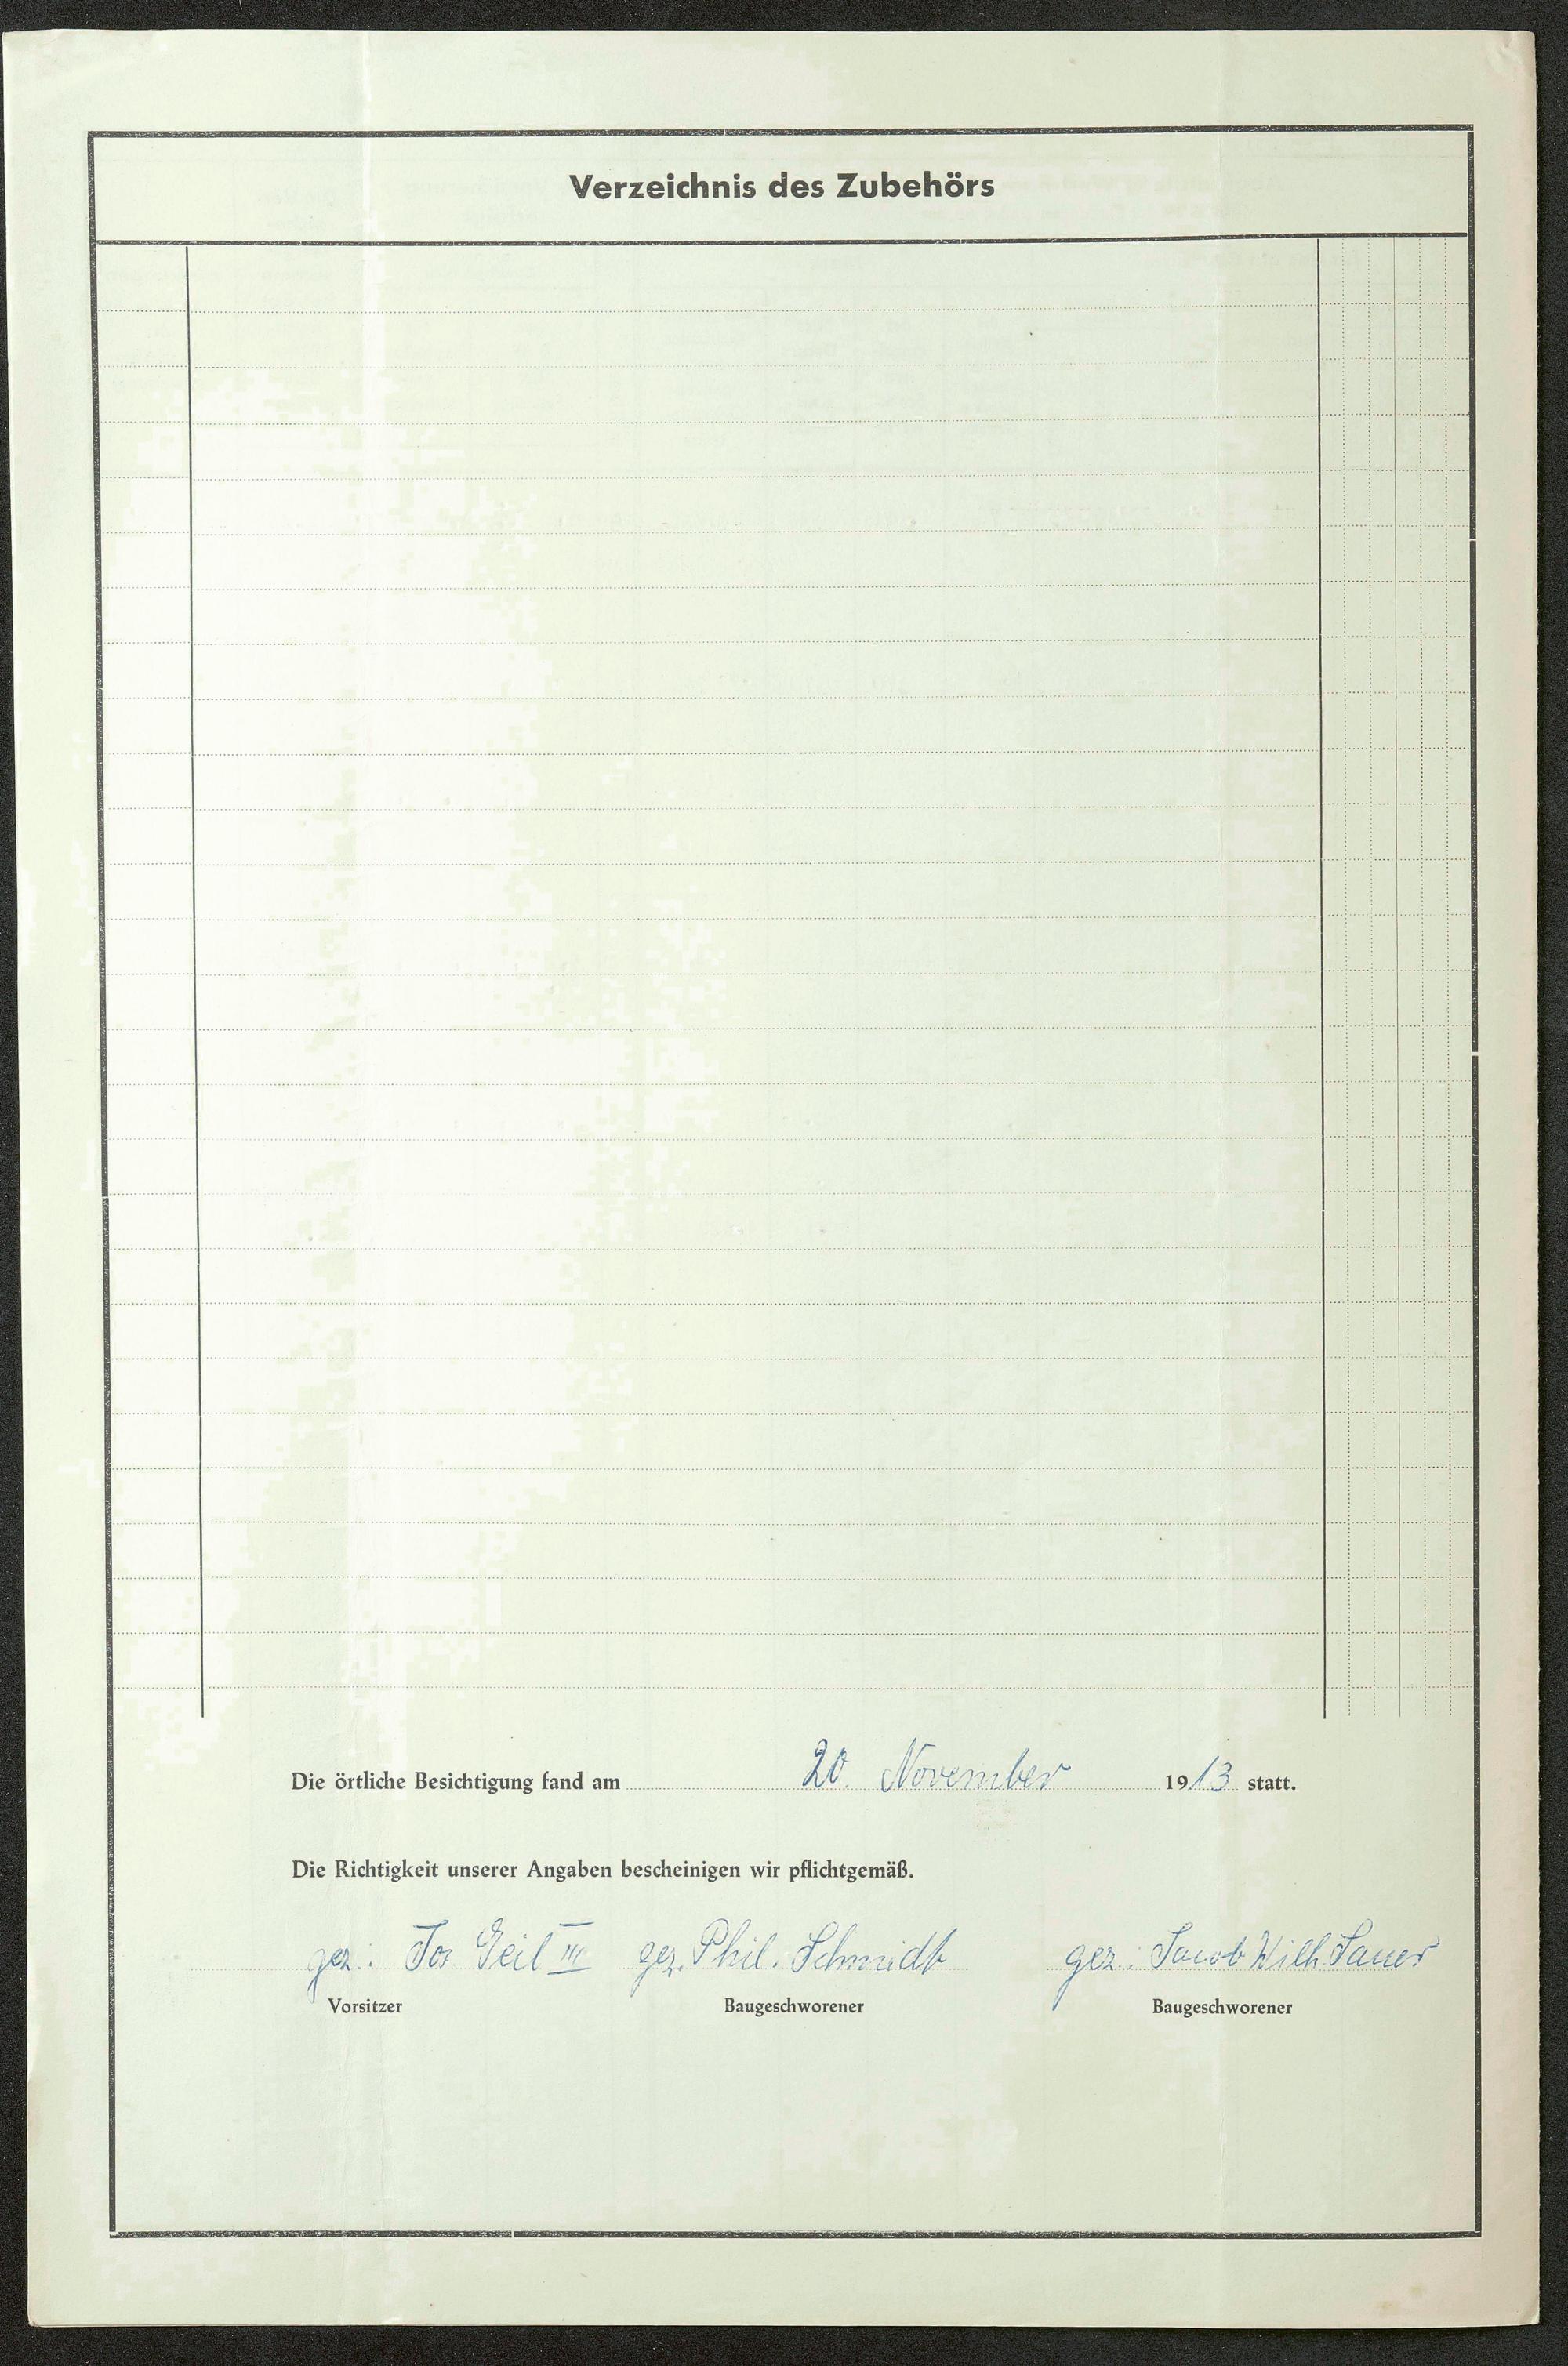 Verzeichnis des Zubehörs
Die örtliche Besichtigung fand am 20. November 1913 statt.
Die Richtigkeit unserer Angaben bescheinigen wir pflichtgemäß.
gez. Jos Geil III gez. Phil. Schmidt gez. Jacob Wilh. Sauer
Vorsitzer Baugeschworener Baugeschworener